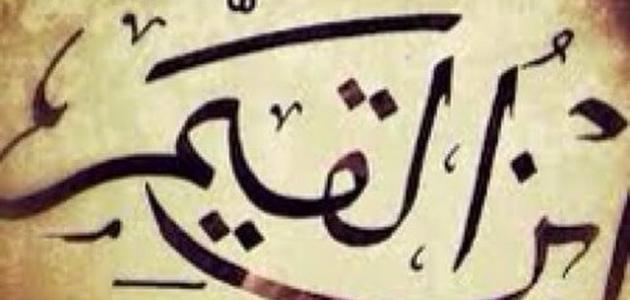 ابن القيم